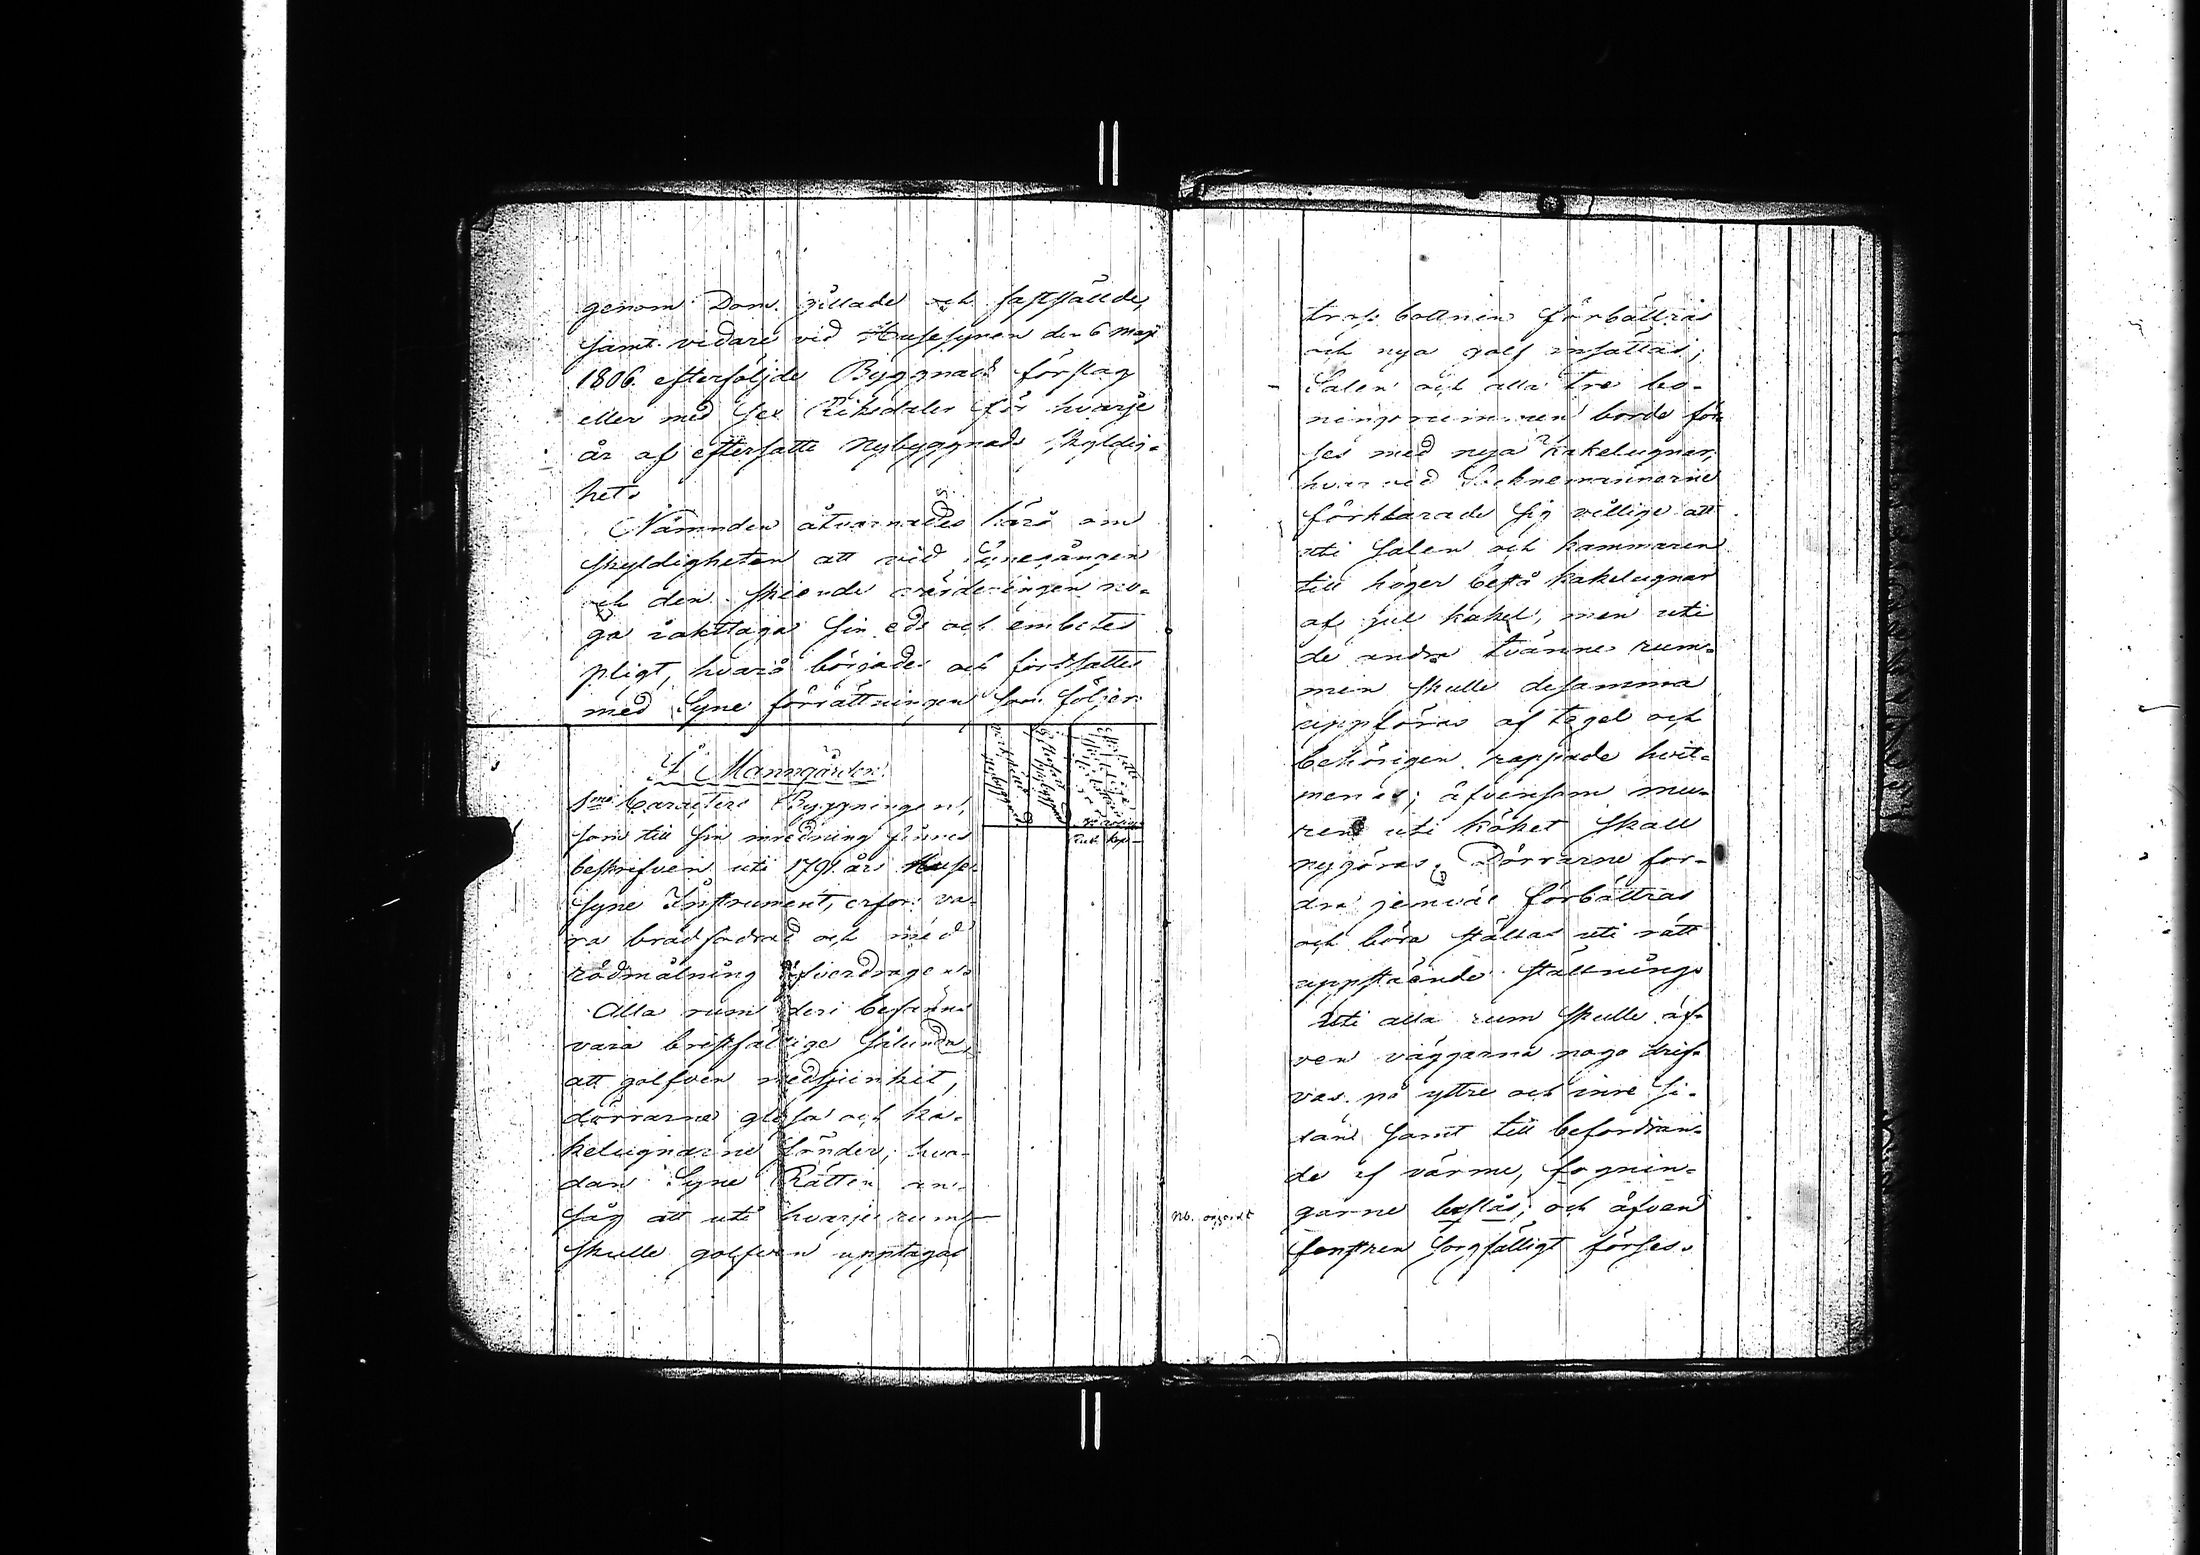 genom Dom. gillade och fastställde,
samt vidare vid Husesynen den 6 Maji
1806. efterföljde Byggnads förslag
eller med sex Riksdaler för hvarje
år af eftersatte Nybyggnads skyldig-
het.
Nämnden åtvarnades härå om
skyldigheten att vid Synegången
och den skeende värderingen no-
ga iakttaga sin ed och embetes
pligt, hvarå började och fortsattes
med Syne förrättningen som följer.
I Manngården.
byggningen,
som till sin inredning finnes
beskrifven uti 1791 års Huse
Syne Instrument, erfors va-
ra brädfodrad och med
rödmålning öfverdragen.
Alla rum deri befanns
vara bristfällige sålunda,
att golfven nedsjunkit,
dörrarne glesa och ka-
kelugnarne sönder, hva-
dan Syne Rätten an-
såg att uti hvarje rum
skulle golfven upptagas
Rub. Kop.
tross bottnen förbättras
och nya golf insättas;
Salen och alla tre bo-
ningsrummen borde för-
ses med nya kakelugnar,
hvarvid Socknemännerne
förklarade sig villige att
uti Salen och kammaren
till höger bestå kakelugnar
af gul kakel, men uti
de andra tvänne rum-
men skulle desamma
uppföras af tegel och
behörigen rappade hvit-
menas; äfvensom mu-
ren uti köket skall
nygöras. Dörrarne for-
dra jemväl förbättras
och böra ställas uti rätt
uppstående ställning.
Uti alla rum skulle äf-
ven väggarna noga drif-
vas på yttre och inre si-
dan samt till befordran-
de af värme, fognin-
garne beslås; och äfven
fenstren sorgfälligt förses.
Nb. ogjordt